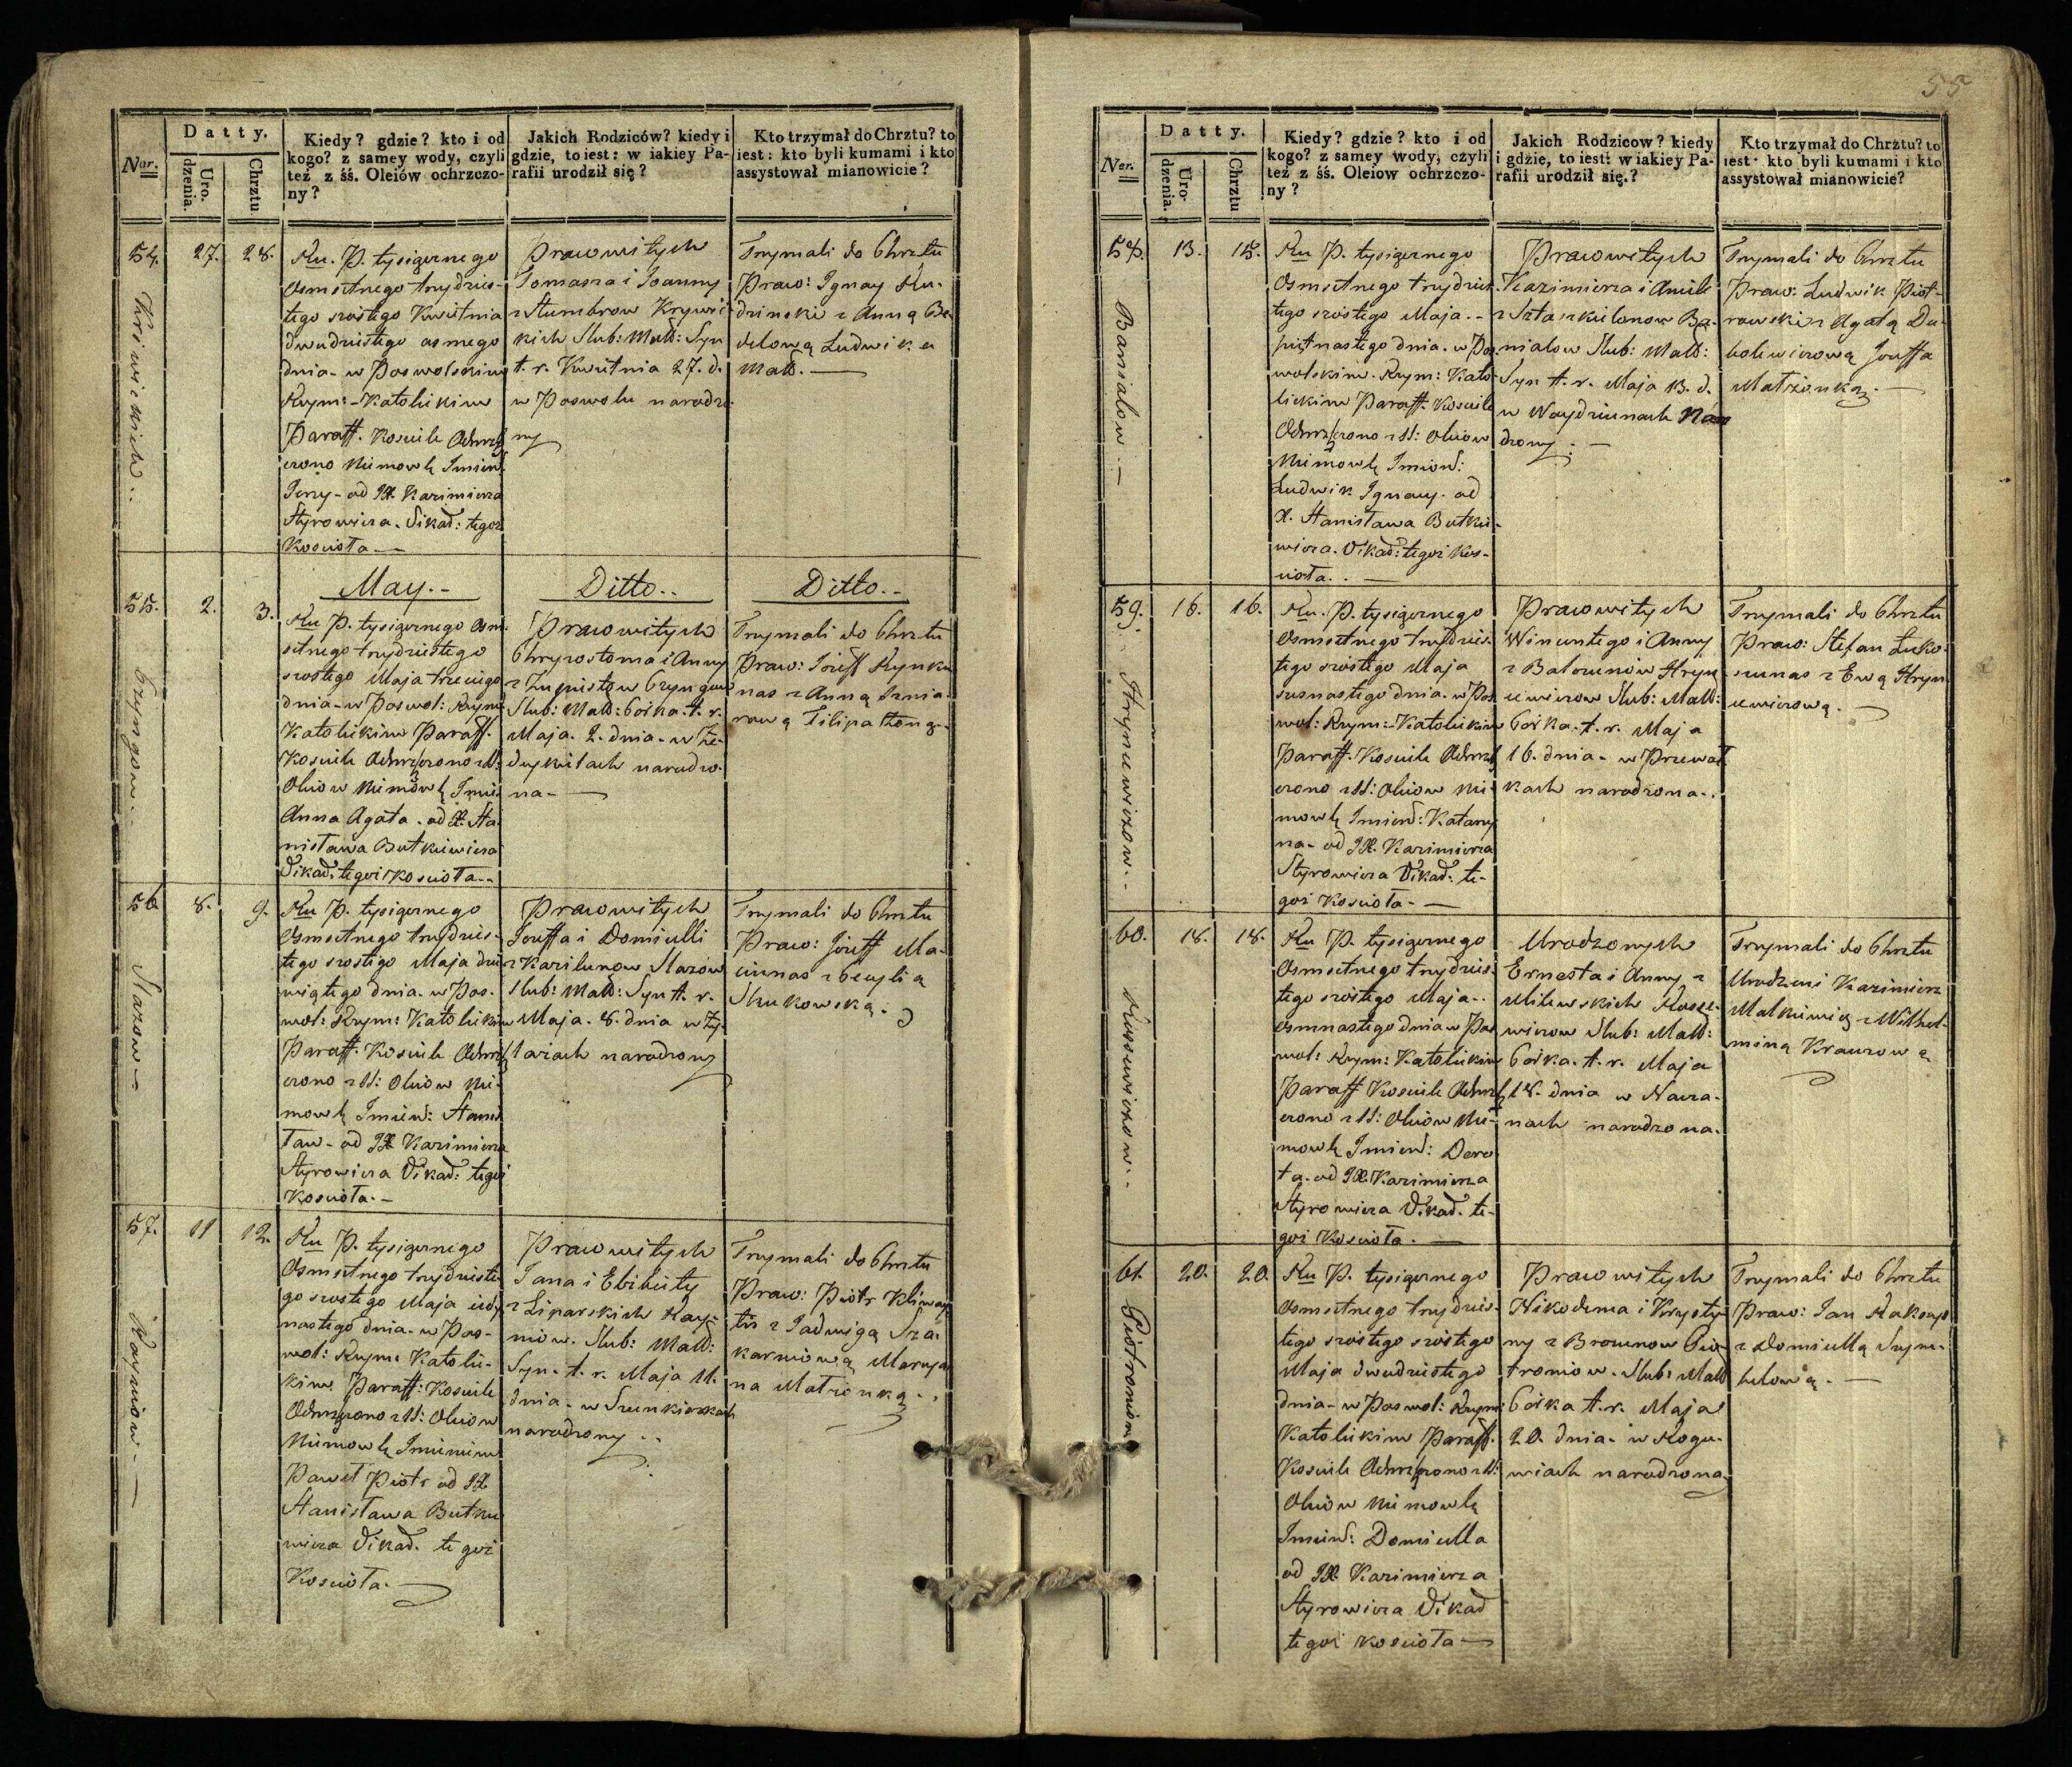 55
Datty.
Nər.
Uro-
dzenia.
Chrztu
Kiedy? gdzie? kto i od
kogo? z samey wody, czyli
też z śś. Oleiów ochrzczo-
ny?
Jakich Rodziców? kiedy i
gdzie, to iest: w iakiey Pa-
rafii urodził się?
Kto trzymał do Chrztu? to
iest: kto byli kumami i kto
assystował mianowicie?
54. 27. 28.
Ru. P. tysiącznego
Osmsetnego trzydzies-
tego szostego Kwietnia
dwudziestego osmego
dnia - w Poswolskim
Rzym: Katolickim
Paraff. Kosciele Ochrzcz
czono Niemowlę Imien:
Jerzy - od JX Kazimierza
Styrowicza. Wikad: tegoz
Kosciola. —
Prawowitych
Tomasza i Joanny
z Stumbrow Krywic-
kich Slub: Małż: Syn
t. r. Kwietnia 27. d.
w Poswolu narodzo-
ny
Trzymali do Chrztu
Praw: Ignacy Ru-
dzinski z Anną Be-
delową Ludwika
Małż. —
May. -
Ditto..
Ditto..
55. 2. 3.
Ru P. tysiącznego Osm-
setnego trzydziestego
szostego Maja trzeciego
dnia - w Poswol: Rzym:
Katolickim Paraff.
Kosciele Ochrzczono z SS.
Oleiow Niemowlę Imie:
Anna Agata. od X. Sta-
nisława Butkiewicza
Wikad. tegoi Kosciola..
Prawowitych
Chryzostoma i Anny
Slub: Małż: Corka. t. r.
Maja. 2. dnia - w
narodzo-
na - —
Trzymali do Chrztu
Praw: Jozeff Rynku-
nas z Anną
rową Filipa Żoną.
56 8. 9.
Slazow
Ru P. tysiącznego
Osmsetnego trzydzies-
tego szostego Maja dzie-
wiątego dnia - w Pos-
wol: Rzym: Katolickim
Paraff. Kosciele Ochrzcz
czono z SS: Oleiow Nie-
mowlę Imien: Stanis
ław - od JX Kazimierza
Styrowicza Wikad: tegoi
Kosciola. -
Prawowitych
Jozeffa i Domicelli
z Karilunow Slazów
Slub: Małż: Syn t. r.
Maja. 8. dnia w Ży-
laiach narodzony
Trzymali do Chrztu
Praw: Jozeff Ma-
ciunas z Cecylią
Skukowską.
57. 11 12.
Ru P. tysiącznego
Osmsetnego trzydzieste-
go szostego Maja iedy-
nastego dnia - w Pos-
wol: Rzym: Katolic-
kim Paraff: Kosciele
Ochrzczono z SS: Oleiow
Niemowlę Imieniem
Paweł Piotr od JX
Stanisława Butkie
wicza Wikad. tegoi
Kosciola. —
Prawowitych
Jana i Elzbiety
z Liparskich Ray-
niow. Slub: Małż:
Syn. t. r. Maja 11.
dnia - w Szunkiszkach
narodzony..
Trzymali do Chrztu
Praw: Piotr Klimay
tis z Jadwigą Sza-
karniową Marcya-
na Małżonką..
Datty.
Nər.
Uro-
dzenia.
Chrztu
Kiedy? gdzie? kto i od
kogo? z samey wody, czyli
też z śś. Oleiow ochrzczo-
ny?
Jakich Rodzicow? kiedy
i gdzie, to iest: w iakiey Pa-
rafii urodził się?
Kto trzymał do Chrztu? to
iest: kto byli kumami i kto
assystował mianowicie?
58. 13. 15.
Banialow. —
Ru P. tysiącznego
Osmsetnego trzydzies-
tego szóstego Maja. -
piętnastego dnia. w Pos-
wolskim. Rzym: Kato-
lickim Paraff. Kosciele
Ochrzczono z SS: Oleiow
Niemowlę Imion:
Ludwik Ignacy. od
X. Stanisława Butkie-
wicza. Wikad: tegoi Kos-
ciola.. —
Prawowitych
Kazimierza i Anieli
z Sztaszkielonow Ba-
nialow Slub: Małż:
Syn t. r. Maja 13. d.
w Woydziunach Naro
dzony. —
Trzymali do Chrztu
Praw: Ludwik Piot-
rowski z Agatą Da-
Jozeffa
Małżonką. —
59. 16. 16.
Hryncewiczow..
Ru. P. tysiącznego
Osmsetnego trzydzies-
tego szóstego Maja
szesnastego dnia. w Pos
wol: Rzym: Katolickim
Paraff. Kosciele Ochrzcz
czono z SS: Oleiow Nie-
mowlę Imien: Katarzy
na - od JX. Kazimierza
Styrowicza Wikad. te-
goi Kosciola - —
Prawowitych
Wincentego i Anny
z Balcunow Hryn
cewiczow Slub: Małż:
Corka. t. r. Maja
16. dnia - w Przewał
kach narodzona..
Trzymali do Chrztu
Praw: Stefan Łuko-
szunas z Ewą Hryn
cewiczową. —
60. 18. 18.
Ru P. tysiącznego
Osmsetnego trzydzies-
tego szóstego Maja..
osmnastego dnia w Pos
wol: Rzym: Katolickim
Paraff Kosciele Ochrzcz
czono z SS: Oleiow Nie-
mowlę Imien: Doro
ta. od JX. Kazimierza
Styrowicza Wikad. te-
goi Kosciola. —
Urodzonych
Ernesta i Anny z
Milewskich Kosce-
wiczow Slub: Małż:
Corka. t. r. Maja
18. dnia w Nacza-
nach narodzona.
Trzymali do Chrztu
Urodzeni Kazimierz
Malkiewicz z Wilhel-
miną Krauzową
61. 20. 20.
Piotroniow
Ru P. tysiącznego
Osmsetnego trzydzies-
tego szóstego szóstego
Maja dwudziestego
dnia - w Poswol: Rzym:
Katolickim Paraff.
Kosciele Ochrzczono z SS:
Oleiow Niemowlę
Imien: Domicella
od JX. Kazimierza
Styrowicza Wikad
tegoi Kosciola —
Prawowitych
Nikodema i Krysty-
ny z Browunow Pio-
troniow. Slub: Małż
Corka t. r. Maja
20. dnia - w Rogu-
wiach narodzona
Trzymali do Chrztu
Praw: Jan
z Domicellą Szym-
belową. —